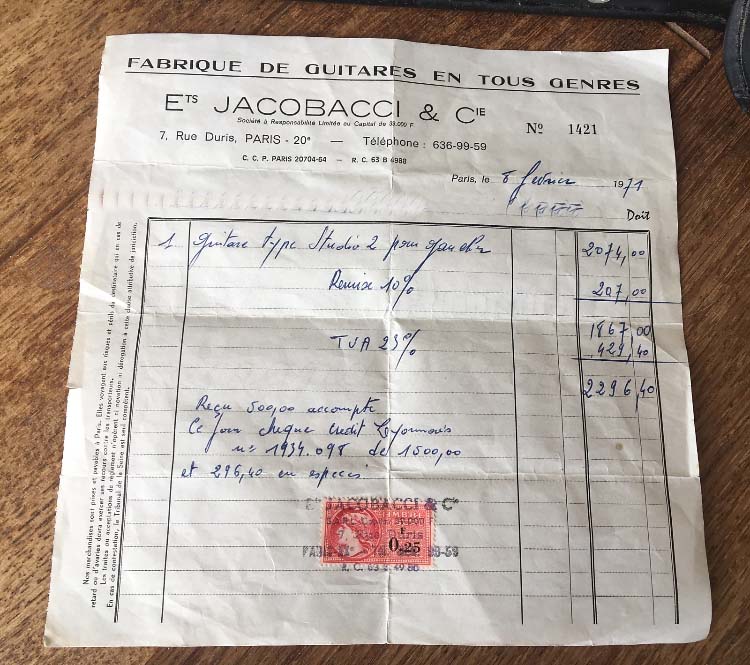 FABRIQUE DE GUITARES EN TOUS GENRES
ETS JACOBACCI & CIE
Société à Responsabilité Limitée au Capital de 33.000 F.
No 1421
7, Rue Duris, PARIS - 20e — Téléphone : 636-99-59
C. C. P. PARIS 20704-64 — R. C. 63 B 4988
Paris, le 8 février 1971
Doit
1 guitare type Studio 2 pour gaucher 2074,00
Remise 10% 207,00
1867,00
TVA 23% 429,40
2296,40
Reçu 500,00 accompte
Ce jour chèque crédit Lyonnais
n° 1934.098 de 1500,00
et 296,40 en espèces
Nos marchandises sont prises et payables à Paris. Elles voyagent aux risques et périls du destinataire qui en cas de
retard ou d'avaries devra exercer ses recours contre les transporteurs.
Les traites ou acceptations de règlement n'opèrent ni novation ni dérogation à cette clause attributive de juridiction.
En cas de contestation, le Tribunal de la Seine est seul compétent.
ETS JACOBACCI & CIE
0,25
R. C. 63 B 4988